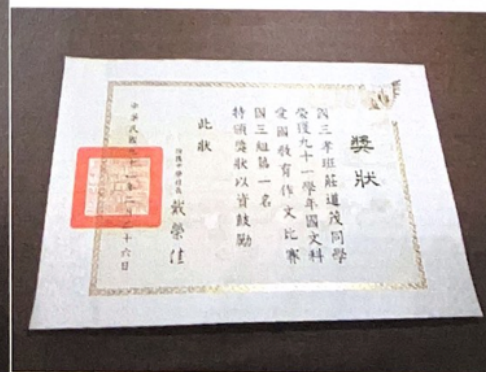 獎狀
國三孝班莊道茂同學
榮獲九十一學年國文科
愛國教育作文比賽
國三組第一名
特頒獎狀以資鼓勵
此狀
戴榮佳
中華民國九十二年二月二十六日